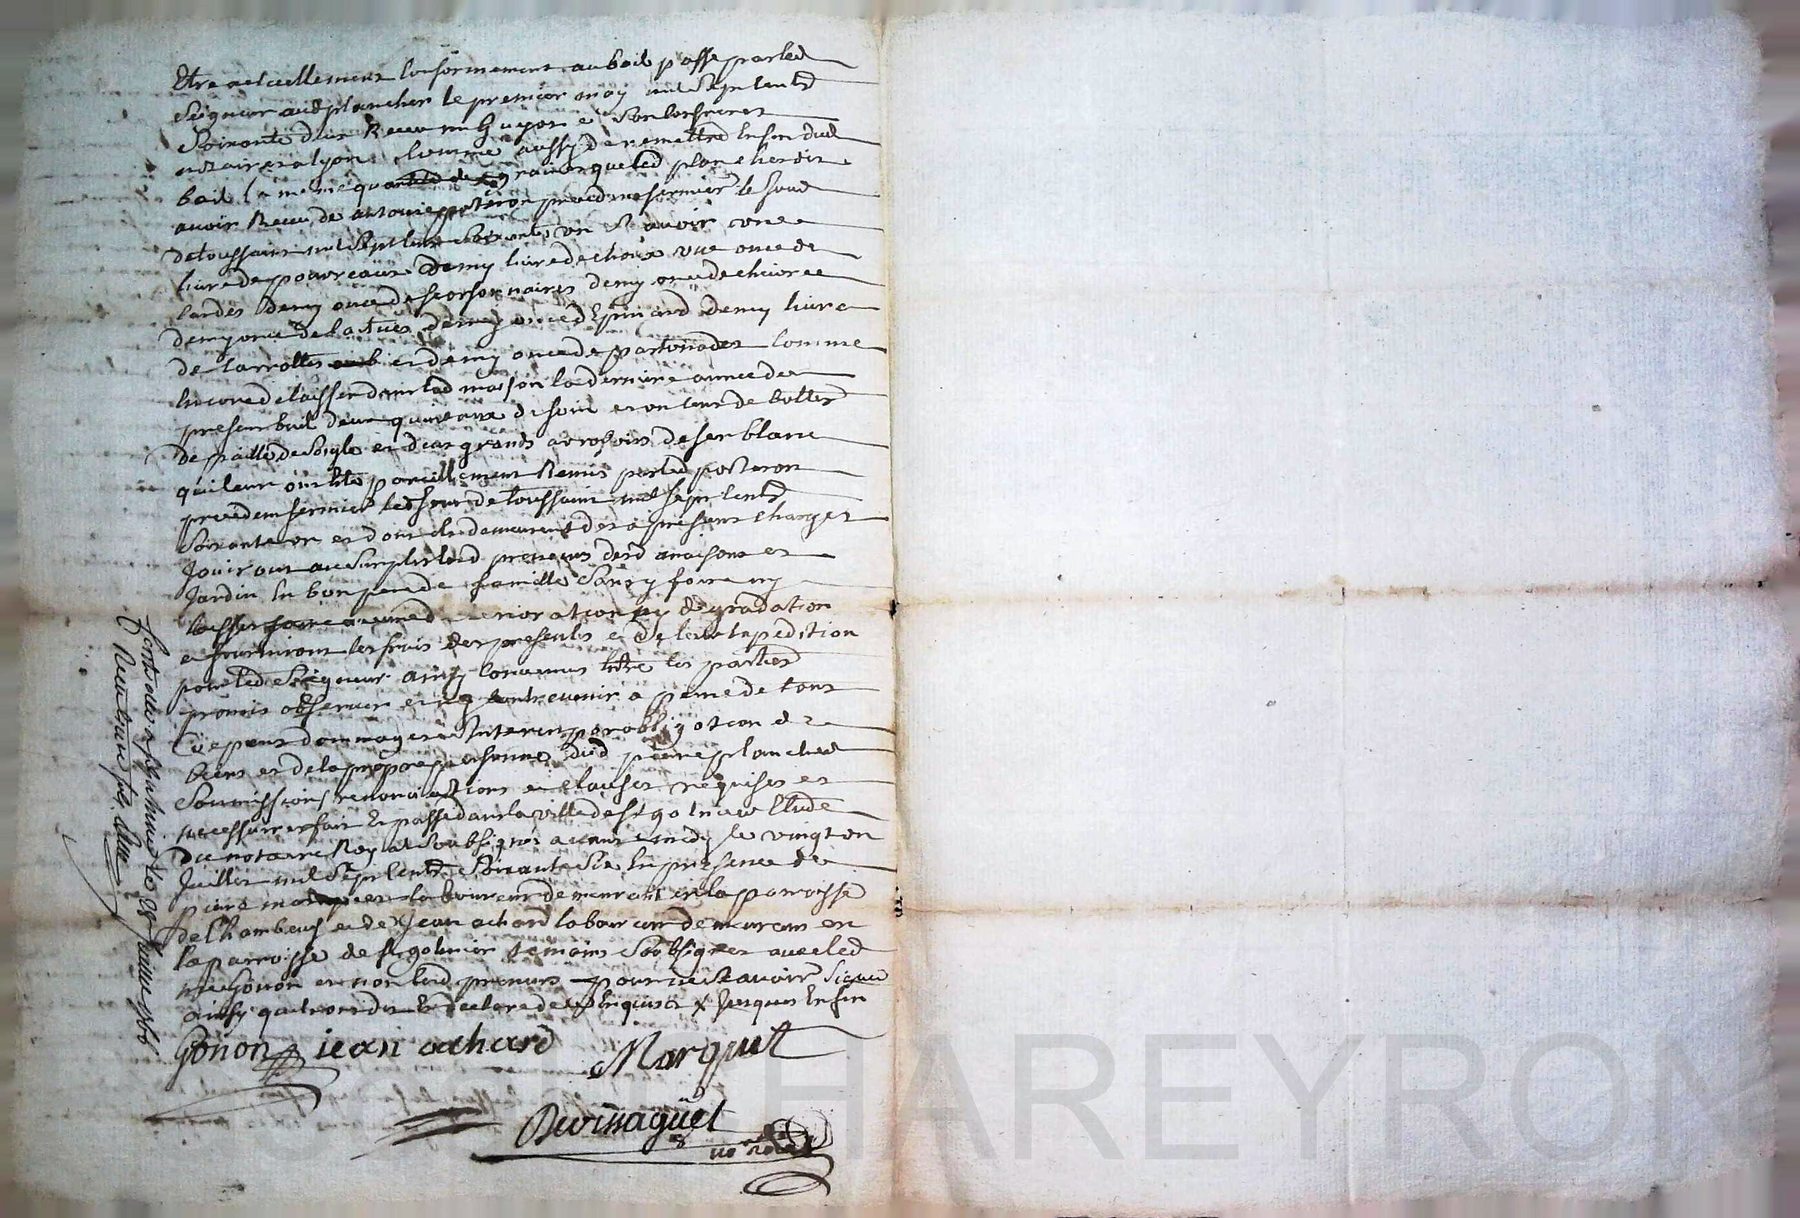 Etre actuellement conformement au bail passé par led
Seigneur aud plancher le premier may mil sept cents
Soixante deux Receu me Guyot et Son confrere
notaires a lyon Comme aussy de remettre en fin dud
bail la meme quantité de graines que led plancher dit
avoir Receu de antoine poteron precedent fermier le jour
de toussaint mil sept cents Soixante un Scavoir une
livre de pourreaux demy livre de choux une once de
cardes demy once de scorsonnaires demy once de chicoree
demy once de lactues demy once d'Epinard demy livre
de Carrottes et demy once de pastonades Comme
encore de laisser dans lad maison la derniere année du
present bail deux quintaux de foin et un cent de bottes
de paille de Seigle et deux grands arrosoirs de fer blanc
qui leur ont été pareillement Remis par led poteron
precedent fermier led jour de toussaint mil sept cents
Soixante un et dont ils demeurent des a present charges
Jouiront au Surplus lesd preneurs desd maisons et
Jardin en bon pere de famille Sans y faire ny
laisser faire aucune deterioration ny degradation
et fourniront les frais des presentes et de leur expedition
pour led Seigneur ainsy convenus entre les parties
promis observer et ny contrevenir a peine de tous
depens dommages et Interets par obligation de
biens et de la propre personne dud pierre plancher
Soumissions renonciations et clauses requises et
necessaires fait et passé dans la ville de st galmier Etude
du notaire Royal Soubsigné avant midy le vingt un
Juillet mil Sept Cents Soixante Six En presence de
pierre marquet laboureur demeurant en la parroisse
de Chambeuf et de Jean achard laboureur demeurant en
la parroisse de st galmier temoins Soubsignes avec led
me Gonon et non lesd preneurs pour ne Scavoir Signer
ainsy quils ont dit et declaré de ce Enquis et Requis Enfin
Gonon jean achard Marquet
Devissaguet
no.re Royal
Controllé a st galmier le 28 Juillet 1766
Receu
HAREYRON